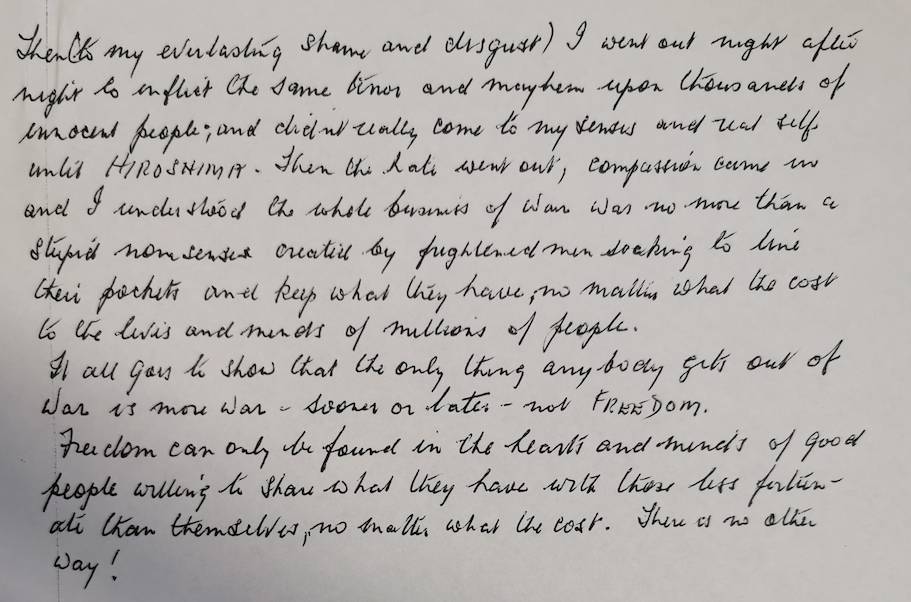 Then (to my everlasting shame and disgust) I went out night after
night to inflict the same terror and mayhem upon thousands of
innocent people; and didn't really come to my senses and real self
until HIROSHIMA. Then the hate went out, compassion came in
and I understood the whole business of war was no more than a
stupid nonsense created by frightened men seeking to line
their pockets and keep what they have, no matter what the cost
to the lives and minds of millions of people.
It all goes to show that the only thing anybody gets out of
war is more war - sooner or later - not FREEDOM.
Freedom can only be found in the hearts and minds of good
people willing to share what they have with those less fortun-
ate than themselves, no matter what the cost. There is no other
way!